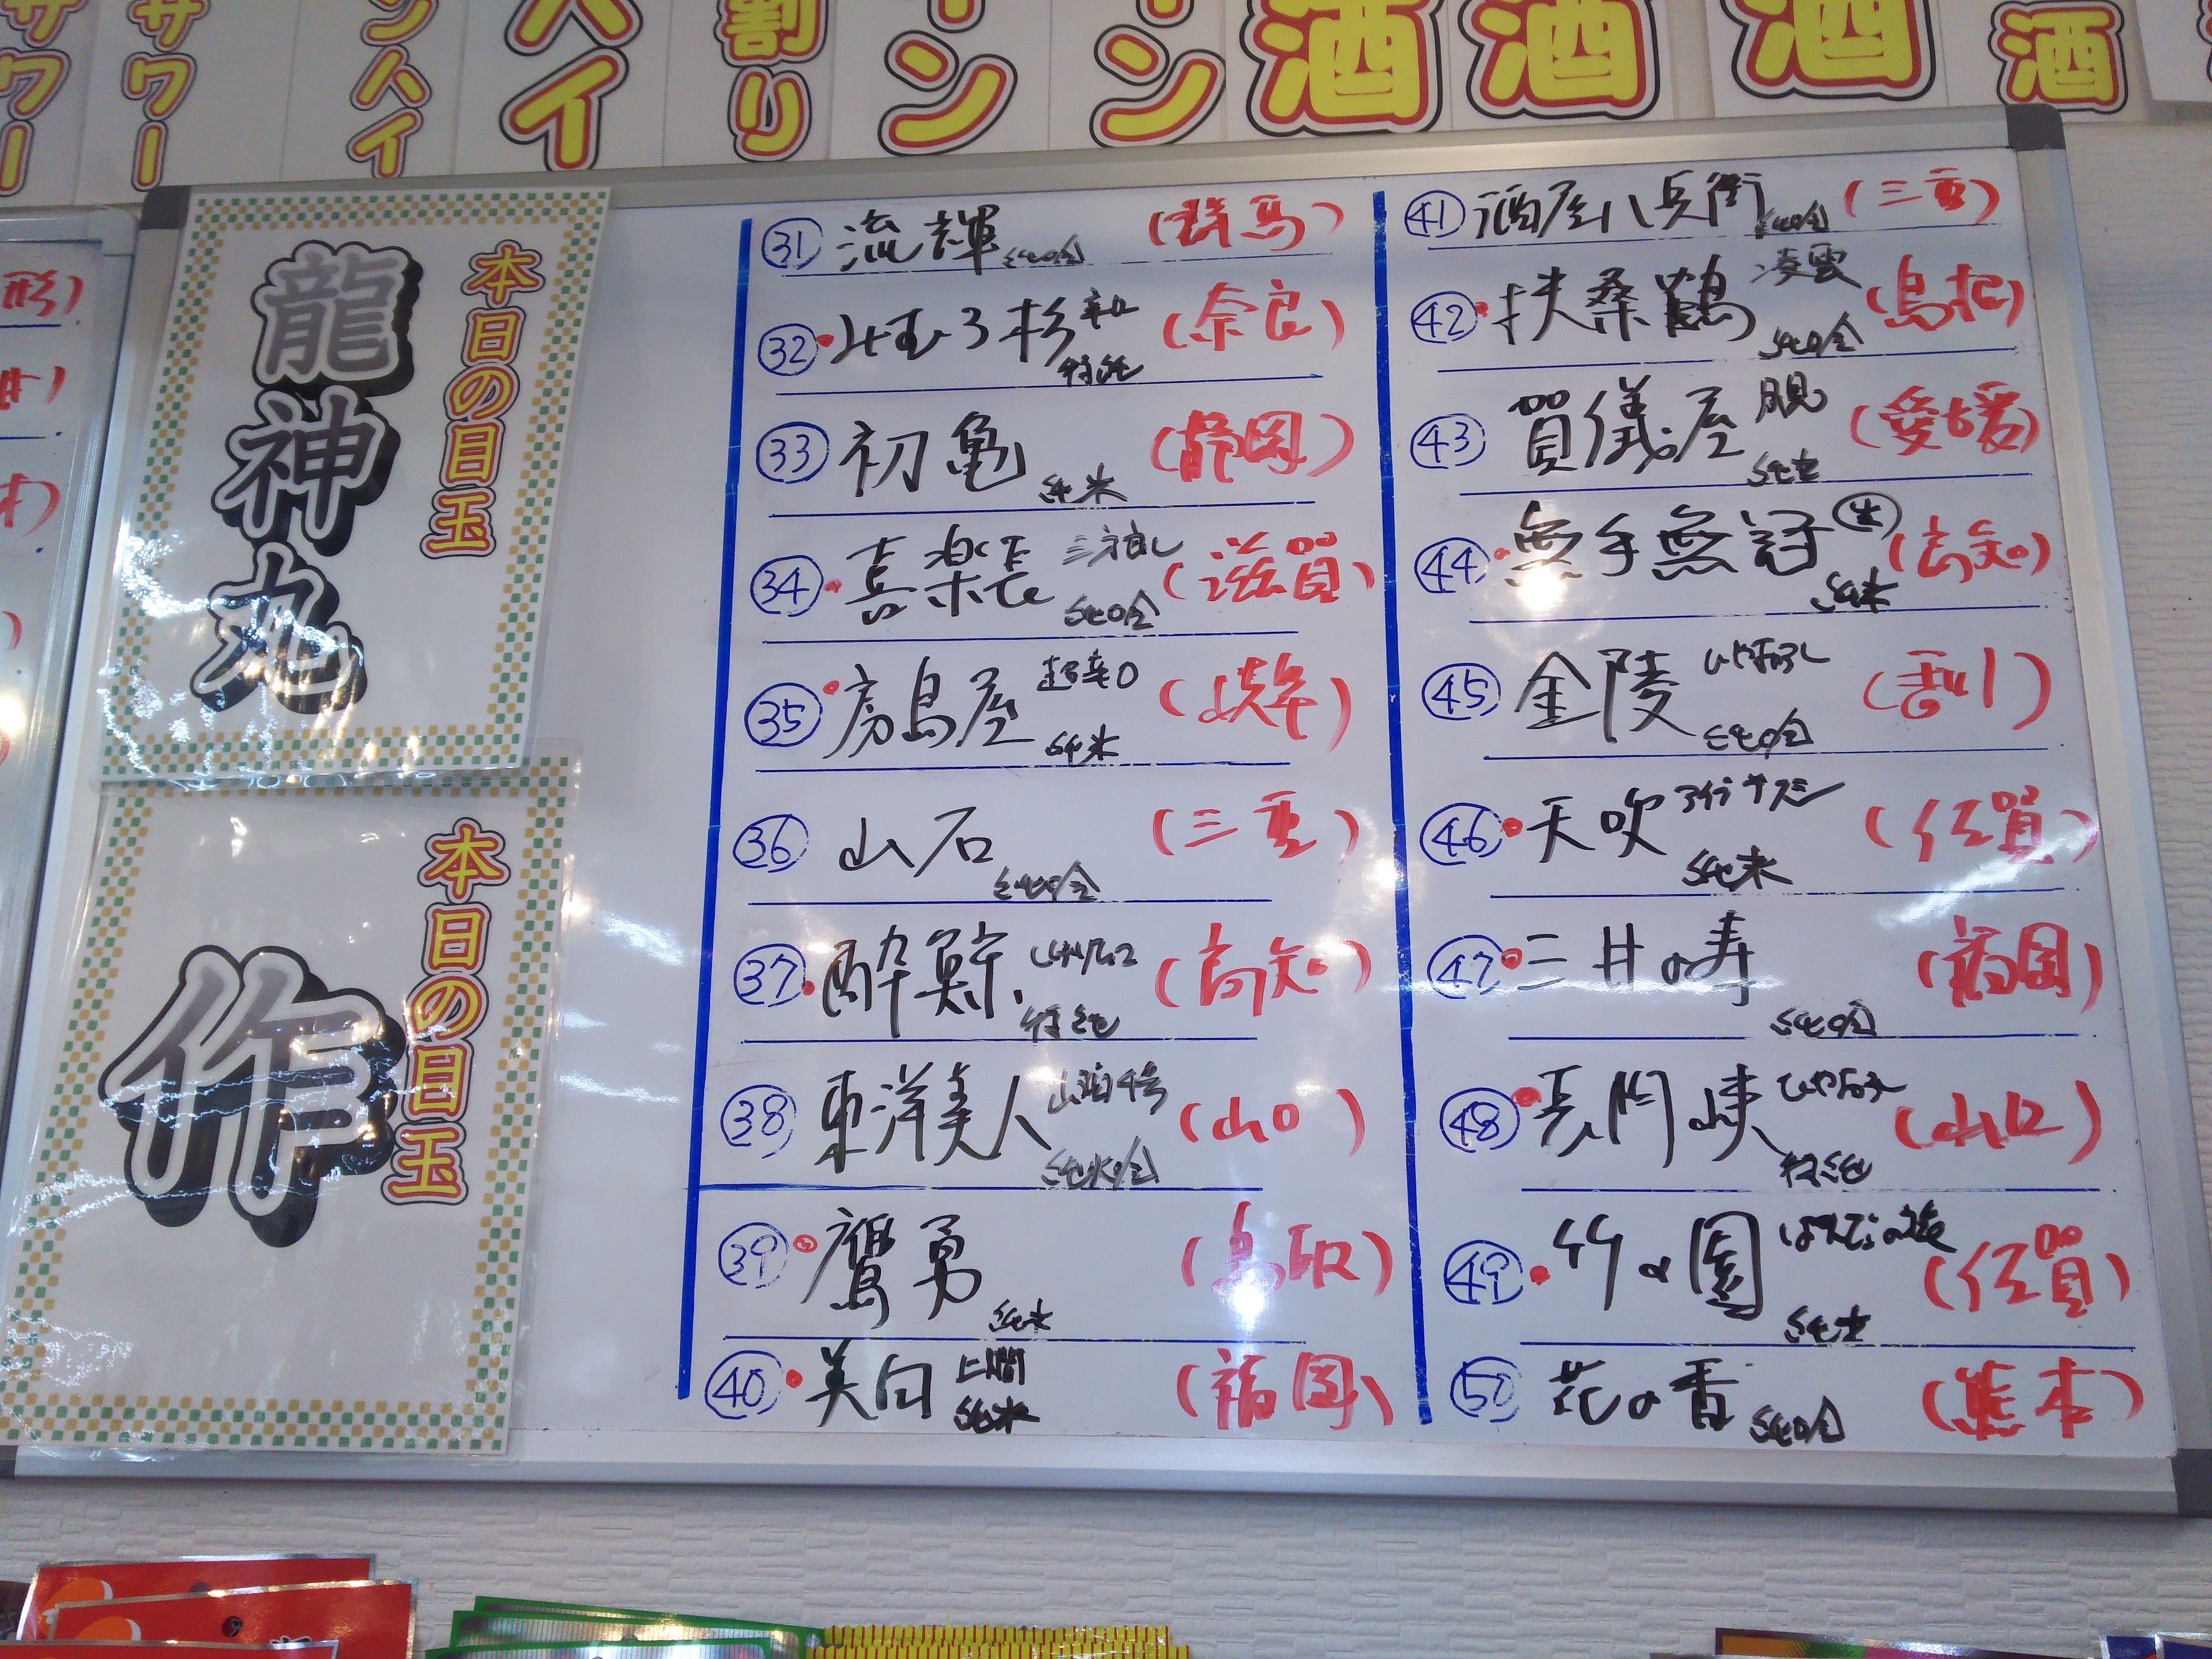 サワー
サワー
ンハイ
ハイ
割り
ン
ン
酒
酒
酒
酒
本日の目玉
龍神丸
本日の目玉
作
㉛ 流輝 純吟 (群馬)
㉜ みむろ杉 辛口 特純 (奈良)
㉝ 初亀 純米 (静岡)
㉞ 喜楽長 純吟 (滋賀)
㉟ 房島屋 超辛口 純米 (岐阜)
㊱ 山石 純吟 (三重)
㊲ 酔鯨 特純 (高知)
㊳ 東洋美人 純米吟 (山口)
㊴ 鷹勇 純米 (鳥取)
㊵ 美田 純米 (福岡)
㊶ 酒屋八兵衛 純吟 (三重)
㊷ 扶桑鶴 凌雲 純吟 (島根)
㊸ 賀儀屋 純米 (愛媛)
㊹ 無手無冠 生 純米 (高知)
㊺ 金陵 ひやおろし 純吟 (香川)
㊻ 天吹 純米 (佐賀)
㊼ 三井の寿 純吟 (福岡)
㊽ 長門峡 ひやおろし 特純 (山口)
㊾ 竹の園 純米 (佐賀)
㊿ 花の香 純吟 (熊本)